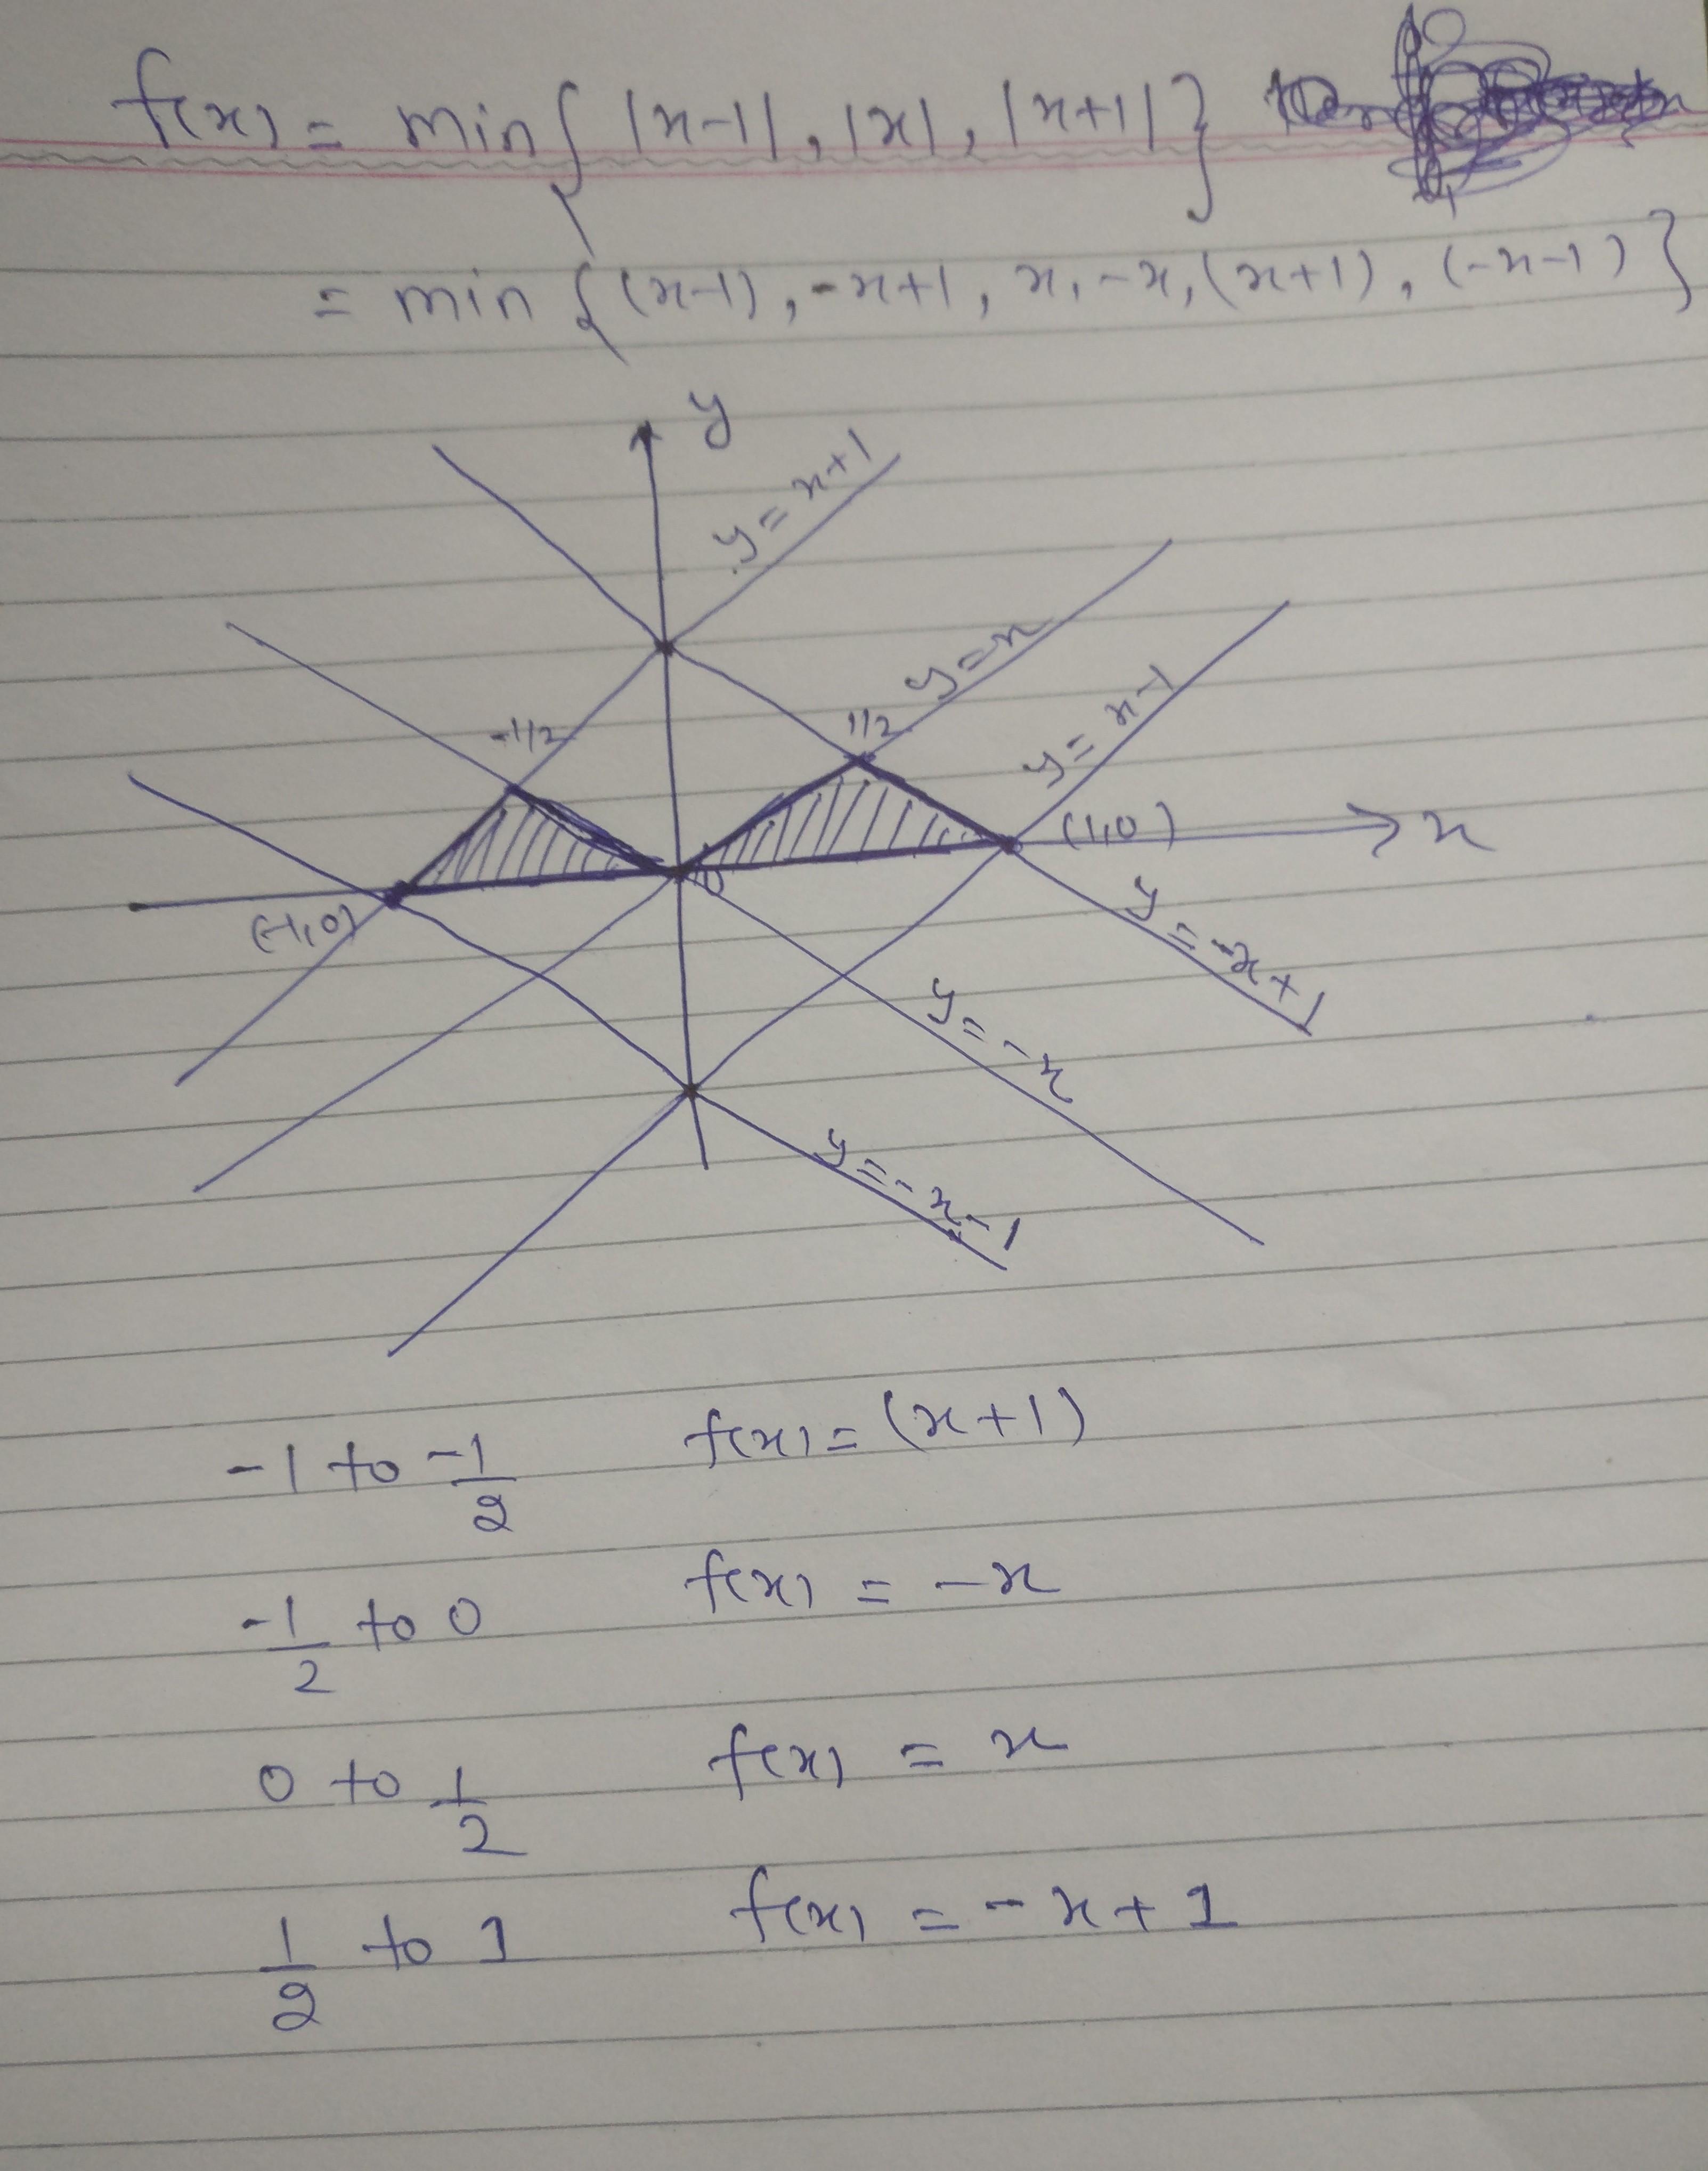 f(x) = min{ |x-1|, |x|, |x+1| }
= min { (x-1), -x+1, x, -x, (x+1), (-x-1) }
y
y = x+1
y=x
-1/2
1/2
y= x-1
(1,0)
x
0
(-1,0)
y = -x+1
y = -x
y = -x-1
-1 to -1/2 f(x) = (x+1)
-1/2 to 0 f(x) = -x
0 to 1/2 f(x) = x
1/2 to 1 f(x) = -x+1